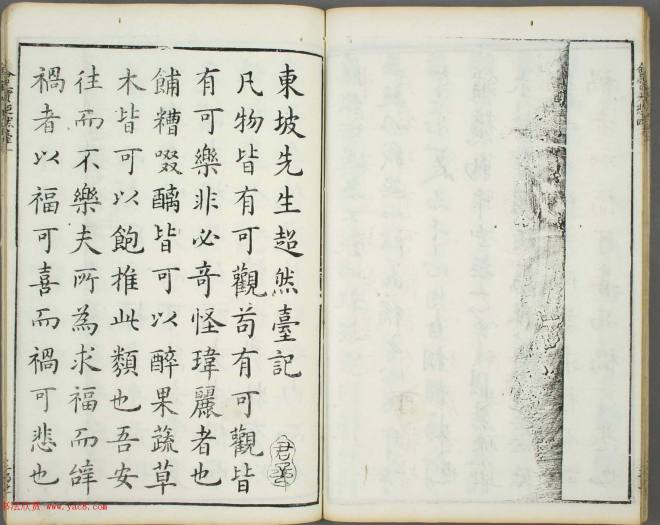 東坡先生超然臺記
凡物皆有可觀苟有可觀皆
有可樂非必竒怪瑋麗者也
餔糟啜醨皆可以醉果蔬草
木皆可以飽推此類也吾安
往而不樂夫所為求福而辝
禍者以福可喜而禍可悲也
书法欣赏 www.yac8.com